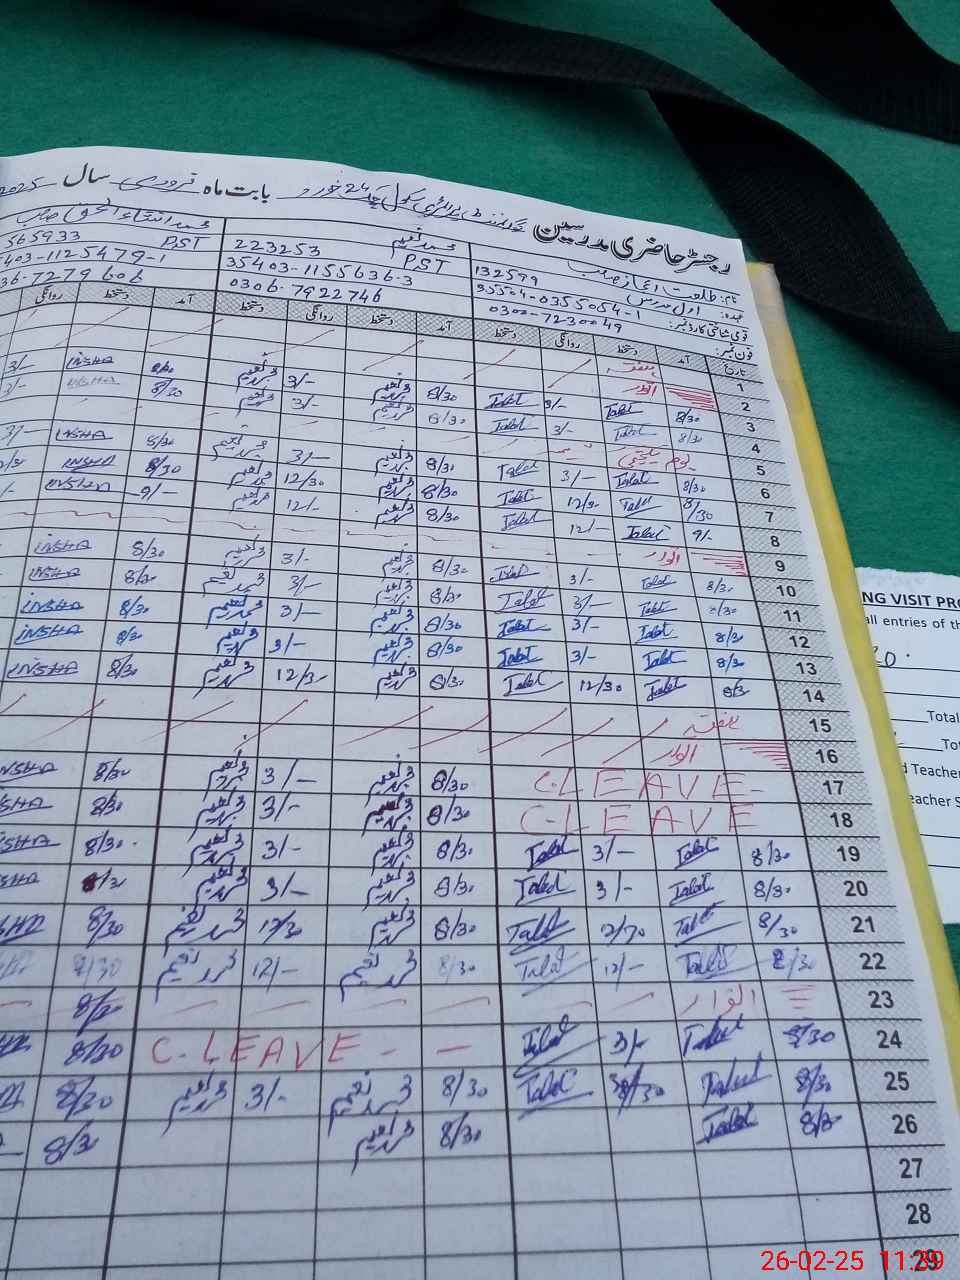 رجسٹر حاضری مدرسین گورنمنٹ پرائمری سکول چک 24 خورد بابت ماہ فروری سال 2025
نام: طلعت اعجاز صاحب 132599
عہدہ: اول مدرس
قومی شناختی کارڈ نمبر: 35504-0355054-1
فون نمبر: 0300-7230049
محمد نعیم
223253 PST
35403-1155636-3
0306-7922746
محمد انشاء الحق صاحب
565933 PST
5403-1125479-1
36-7279606
تاریخ آمد دستخط روانگی دستخط آمد دستخط روانگی دستخط آمد دستخط روانگی
1 ہفتہ
2 اتوار
3 8/30 Talat 3/- Talat 8/30 محمد نعیم 3/- محمد نعیم 8/30 INSHA 3/-
4 8/30 Talat 3/- Talat 8/30 محمد نعیم 3/- محمد نعیم 8/30 INSHA
5
6 8/30 Talat 3/- Talat 8/30 محمد نعیم 3/- محمد نعیم 8/30 INSHA
7 8/30 Talat Talat 8/30 محمد نعیم 12/30 محمد نعیم 8/30 INSHA
8 9/- Talat 12/- Talat 8/30 محمد نعیم 12/- محمد نعیم 9/- INSHA
9 اتوار
10 8/30 Talat 3/- Talat 8/30 محمد نعیم 3/- محمد نعیم 8/30 INSHA
11 8/30 Talat 3/- Talat 8/30 محمد نعیم 3/- محمد نعیم 8/30 INSHA
12 8/30 Talat 3/- Talat 8/30 محمد نعیم 3/- محمد نعیم 8/30 INSHA
13 8/30 Talat 3/- Talat 8/30 محمد نعیم 3/- محمد نعیم 8/30 INSHA
14 8/30 Talat 12/30 Talat 8/30 محمد نعیم 12/30 محمد نعیم 8/30 INSHA
15 ہفتہ
16 اتوار
17 C.LEAVE- 8/30 محمد نعیم 3/- محمد نعیم 8/30 NSHA
18 C.LEAVE 8/30 محمد نعیم 3/- محمد نعیم 8/30 SHA
19 8/30 Talat 3/- Talat 8/30 محمد نعیم 3/- محمد نعیم 8/30 SHA
20 8/30 Talat 3/- Talat 8/30 محمد نعیم 3/- محمد نعیم SHA
21 8/30 Talat Talat 8/30 محمد نعیم 12/30 محمد نعیم 8/30
22 8/30 Talat 12/- Talat 8/30 محمد نعیم 12/- محمد نعیم 8/30
23 اتوار 8/30
24 8/30 Talat 3/- Talat C.LEAVE - - 8/30
25 8/30 Talat Talat 8/30 محمد نعیم 3/- محمد نعیم 8/30
26 8/30 Talat 8/30 محمد نعیم 8/30
27
28
29
NG VISIT PRO
all entries of th
Total
Tot
d Teacher
eacher S
26-02-25 11:39